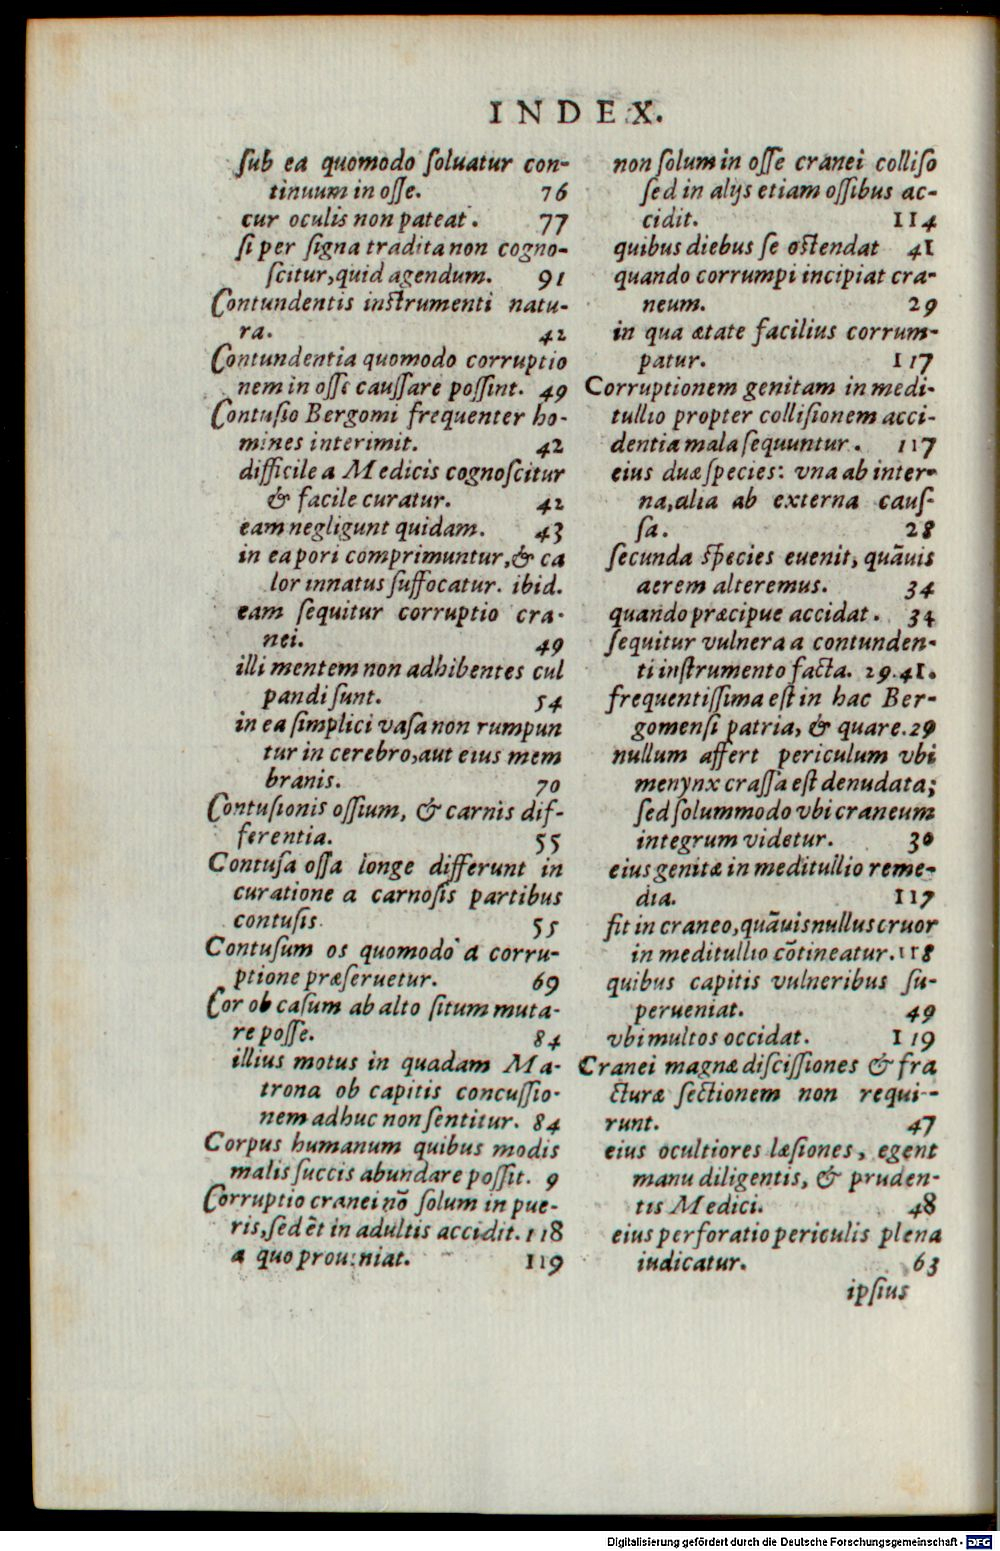 INDEX.
ſub ea quomodo ſoluatur con-
tinuum in oſſe. 76
cur oculis non pateat. 77
ſi per ſigna tradita non cogno-
ſcitur, quid agendum. 91
Contundentis inſtrumenti natu-
ra. 42
Contundentia quomodo corruptio
nem in oſſe cauſſare poſſint. 49
Contuſio Bergomi frequenter ho-
mines interimit. 42
difficile a Medicis cognoſcitur
& facile curatur. 42
eam negligunt quidam. 43
in ea pori comprimuntur, & ca
lor innatus ſuffocatur. ibid.
eam ſequitur corruptio cra-
nei. 49
illi mentem non adhibentes cul
pandi ſunt. 54
in ea ſimplici vaſa non rumpun
tur in cerebro, aut eius mem
branis. 70
Contuſionis oſſium, & carnis dif-
ferentia. 55
Contuſa oſſa longe differunt in
curatione a carnoſis partibus
contuſis. 55
Contuſum os quomodo a corru-
ptione præſeruetur. 69
Cor ob caſum ab alto ſitum muta-
re poſſe. 84
illius motus in quadam Ma-
trona ob capitis concuſſio-
nem adhuc non ſentitur. 84
Corpus humanum quibus modis
malis ſuccis abundare poſſit. 9
Corruptio cranei nō ſolum in pue-
ris, ſed ēt in adultis accidit. 118
a quo proueniat. 119
non ſolum in oſſe cranei colliſo
ſed in alijs etiam oſſibus ac-
cidit. 114
quibus diebus ſe oſtendat 41
quando corrumpi incipiat cra-
neum. 29
in qua ætate facilius corrum-
patur. 117
Corruptionem genitam in medi-
tullio propter colliſionem acci-
dentia mala ſequuntur. 117
eius duæ ſpecies: vna ab inter-
na, alia ab externa cauſ-
ſa. 28
ſecunda ſpecies euenit, quāuis
aerem alteremus. 34
quando præcipue accidat. 34
ſequitur vulnera a contunden-
ti inſtrumento facta. 29.41.
frequentiſſima eſt in hac Ber-
gomenſi patria, & quare. 29
nullum affert periculum vbi
menynx craſſa eſt denudata;
ſed ſolummodo vbi craneum
integrum videtur. 30
eius genitæ in meditullio reme-
dia. 117
fit in craneo, quāuis nullus cruor
in meditullio cōtineatur. 118
quibus capitis vulneribus ſu-
perueniat. 49
vbi multos occidat. 119
Cranei magnæ diſciſſiones & fra
cturæ ſectionem non requi-
runt. 47
eius ocultiores læſiones, egent
manu diligentis, & pruden-
tis Medici. 48
eius perforatio periculis plena
iudicatur. 63
ipſius
Digitalisierung gefördert durch die Deutsche Forschungsgemeinschaft - DFG